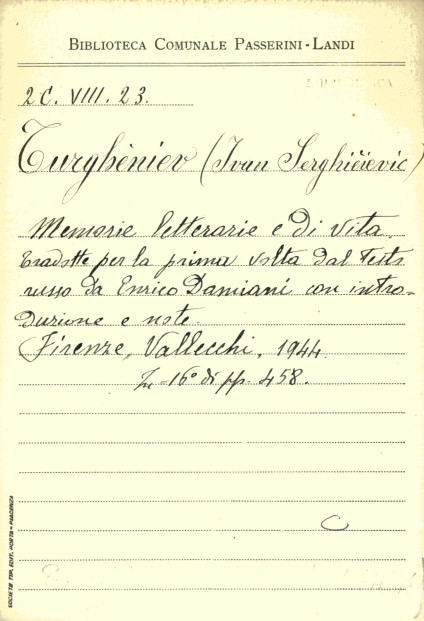 BIBLIOTECA COMUNALE PASSERINI-LANDI
2C. VIII. 23.
Turghèniev (Ivan Serghièievic)
Memorie letterarie e di vita.
Tradotte per la prima volta dal testo
russo da Enrico Damiani con intro-
duzione e note.
Firenze, Vallecchi, 1944.
In-16° di pp. 458.
C
SOCIETÀ TIP. EDIT. PORTA - PIACENZA